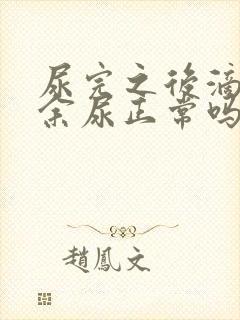 尿完之後滴
余尿正常吗
趙鳳文